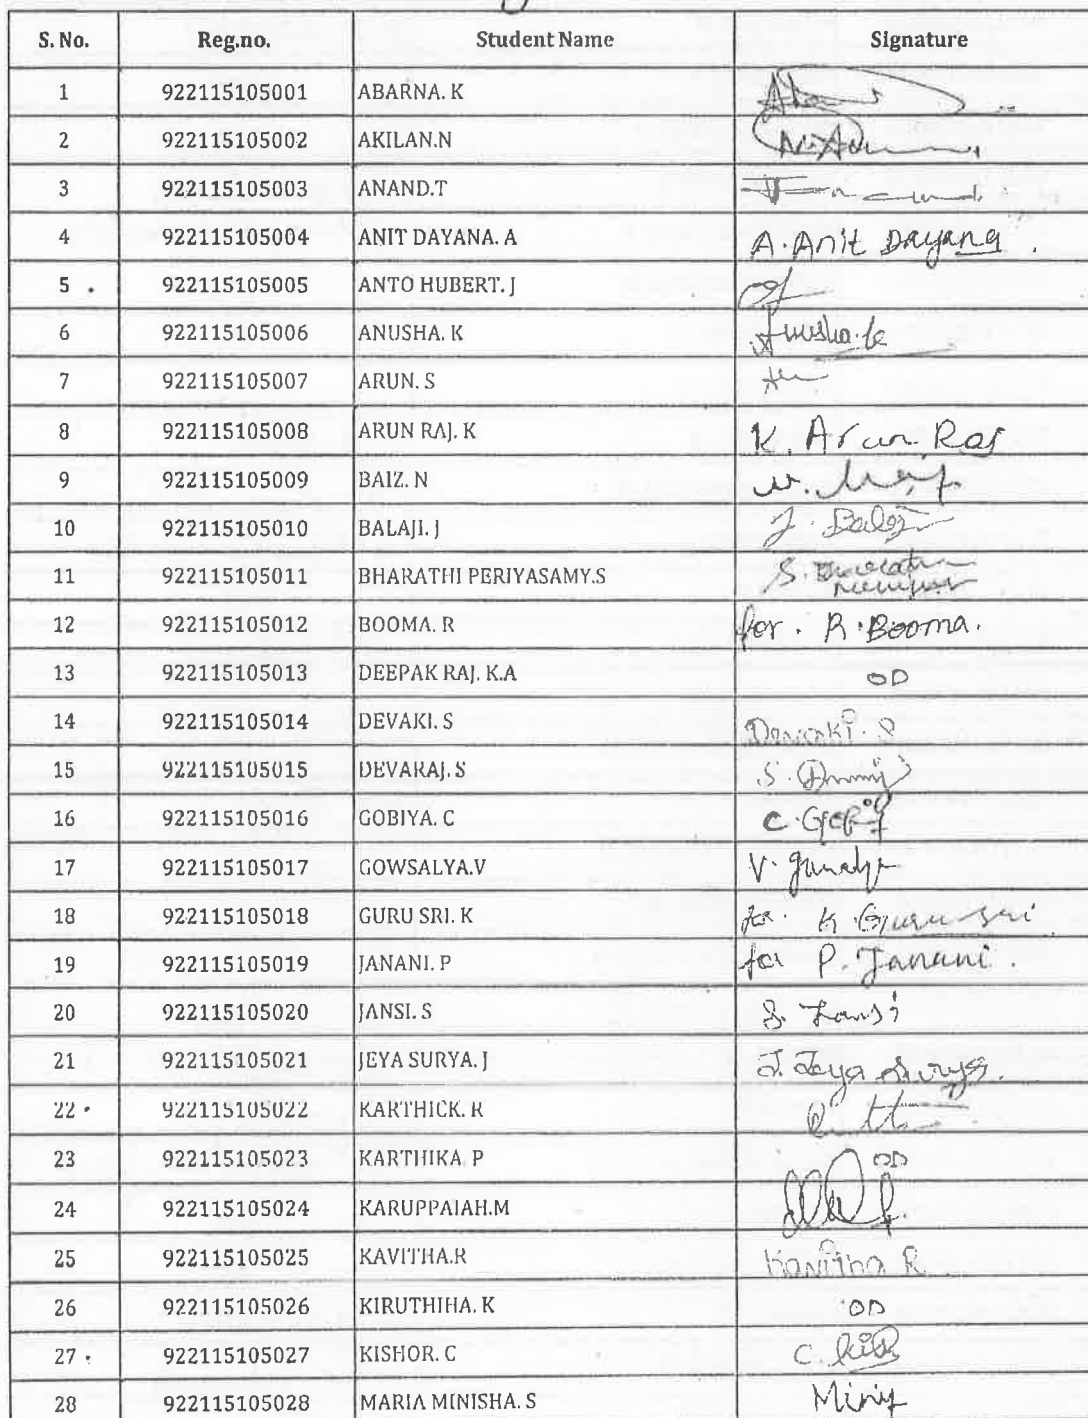 S. No. Reg.no. Student Name Signature
1 922115105001 ABARNA. K
2 922115105002 AKILAN.N
3 922115105003 ANAND.T
4 922115105004 ANIT DAYANA. A A. Anit Dayana.
5 922115105005 ANTO HUBERT. J
6 922115105006 ANUSHA. K Anusha.k
7 922115105007 ARUN. S
8 922115105008 ARUN RAJ. K K. Arun Raj
9 922115105009 BAIZ. N
10 922115105010 BALAJI. J J. Balaji
11 922115105011 BHARATHI PERIYASAMY.S
12 922115105012 BOOMA. R for. R. Booma.
13 922115105013 DEEPAK RAJ. K.A OD
14 922115105014 DEVAKI. S Devaki. S
15 922115105015 DEVARAJ. S
16 922115105016 GOBIYA. C
17 922115105017 GOWSALYA.V
18 922115105018 GURU SRI. K for. K Guru Sri
19 922115105019 JANANI. P for P. Janani.
20 922115105020 JANSI. S S. Jansi
21 922115105021 JEYA SURYA. J J. Jeya Surya.
22 922115105022 KARTHICK. R
23 922115105023 KARTHIKA. P OD
24 922115105024 KARUPPAIAH.M
25 922115105025 KAVITHA.R Kavitha R
26 922115105026 KIRUTHIHA. K OD
27 922115105027 KISHOR. C
28 922115105028 MARIA MINISHA. S